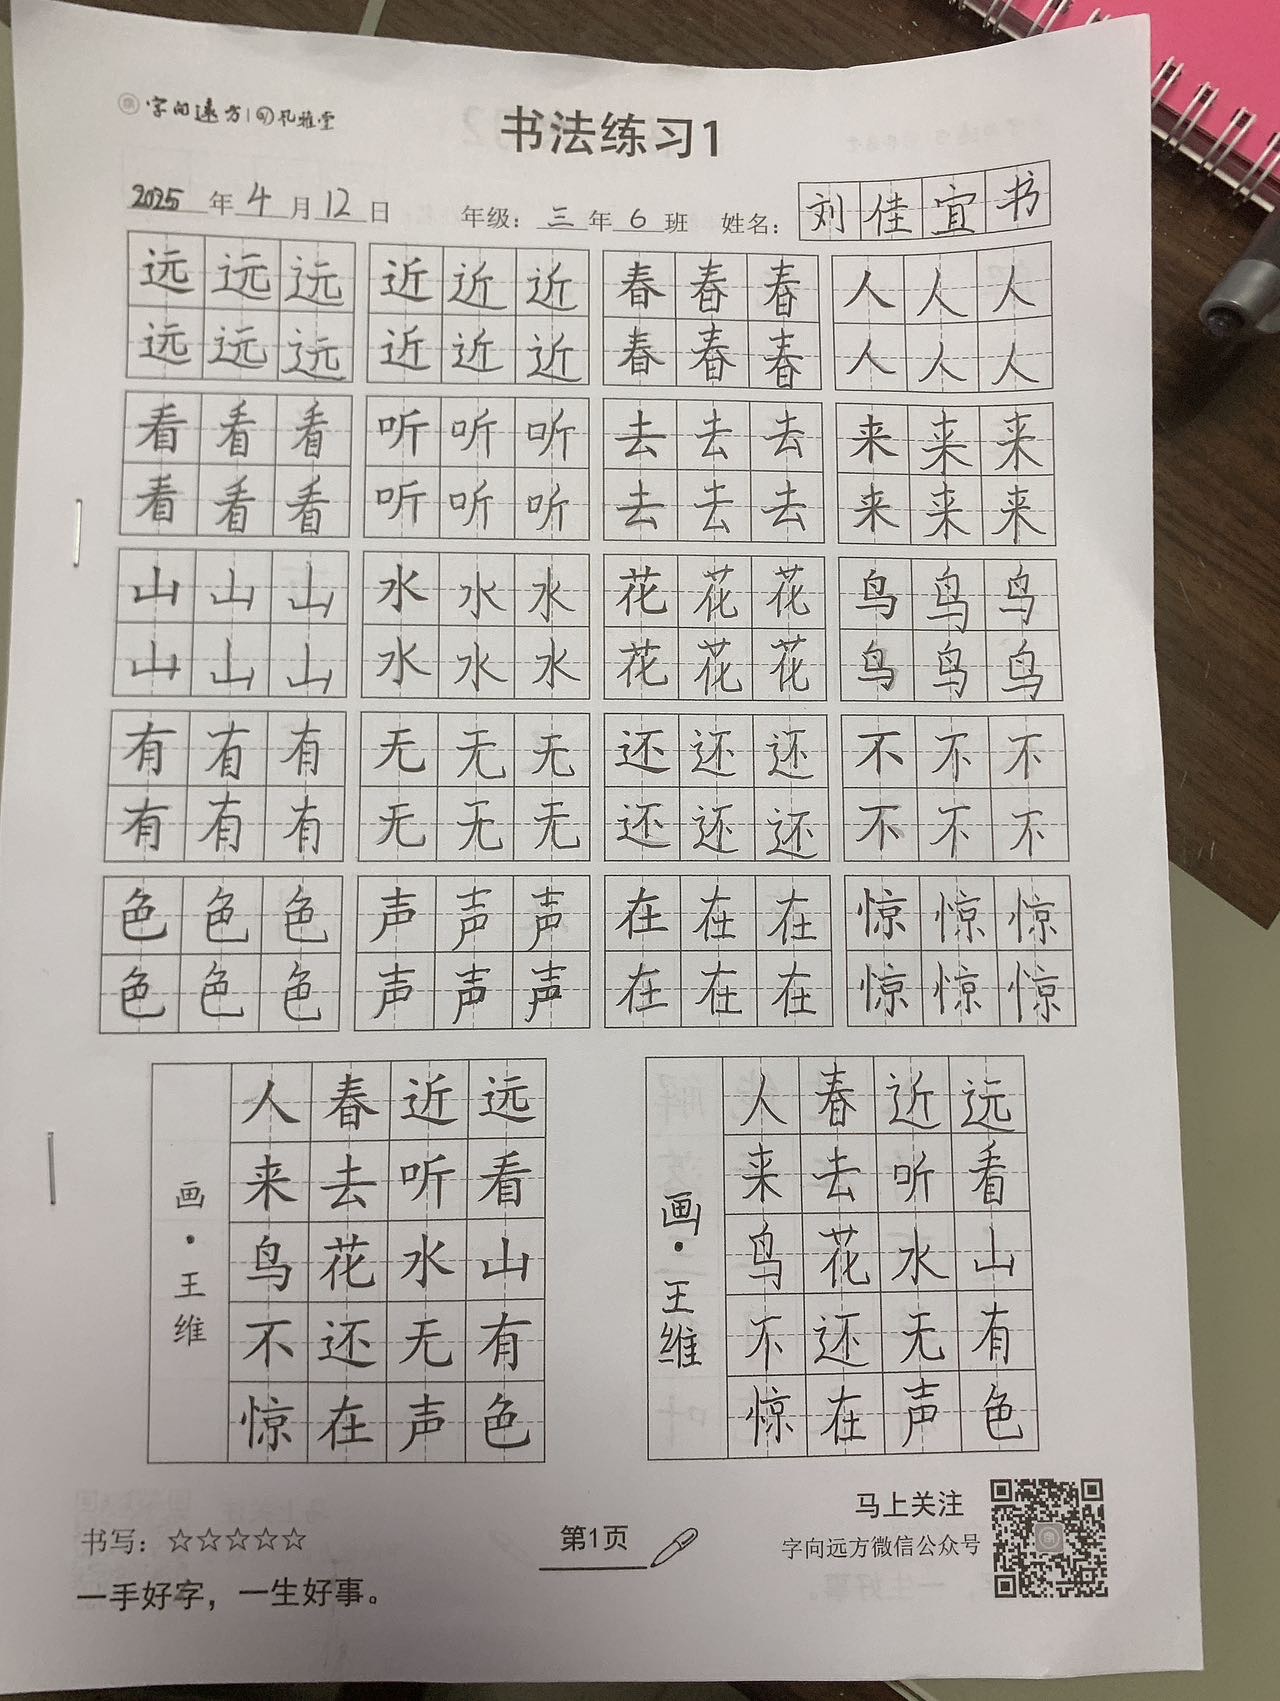 字向远方 孔雅堂
书法练习1
2025年4月12日 年级：三年6班 姓名：刘佳宜书
远远远 近近近 春春春 人人人
远远远 近近近 春春春 人人人
看看看 听听听 去去去 来来来
看看看 听听听 去去去 来来来
山山山 水水水 花花花 鸟鸟鸟
山山山 水水水 花花花 鸟鸟鸟
有有有 无无无 还还还 不不不
有有有 无无无 还还还 不不不
色色色 声声声 在在在 惊惊惊
色色色 声声声 在在在 惊惊惊
远看山有色
近听水无声
春去花还在
人来鸟不惊
画·王维
远看山有色
近听水无声
春去花还在
人来鸟不惊
画·王维
书写：☆☆☆☆☆
一手好字，一生好事。
第1页
马上关注
字向远方微信公众号